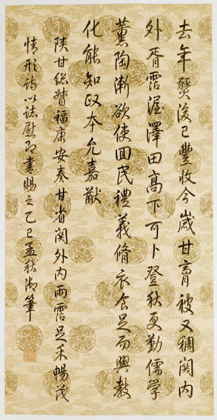 去年賑後已豐收今歲甘膏被又稠關內
外胥霑渥澤田高下可卜登秋更勤儒學
薰陶漸欲使回民禮義脩衣食足而興教
化能知政本允嘉猷
陝甘總督福康安奏甘省關外內雨霑足禾暢茂
情形詩以誌慰即書賜之乙巳孟秋御筆